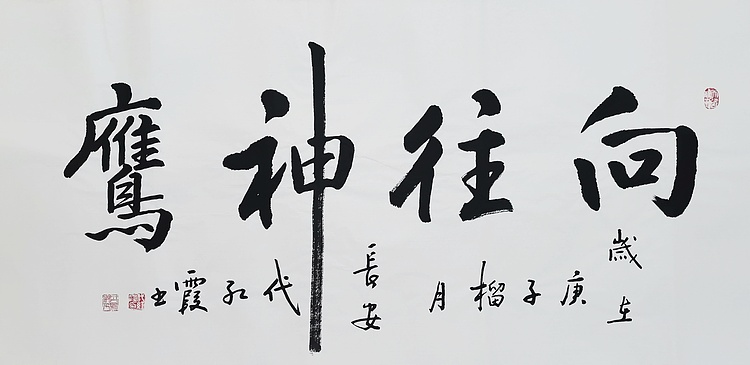 向往神鹰
歲在庚子榴月長安代红霞书